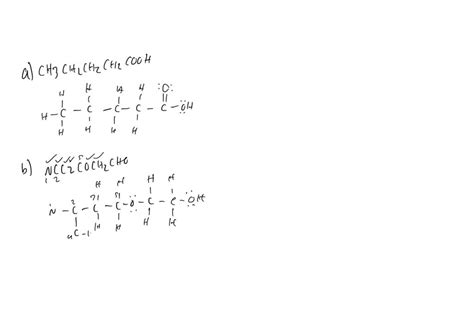 a) CH3 CH2CH2 CH2 COOH
H H H H :O:
H-C-C-C-C-C-ÖH
H H H H
b) NCC2COCH2CHO
1 2
H H H H
N-C-C-C-O-C-C-OH
C-1 H H H H